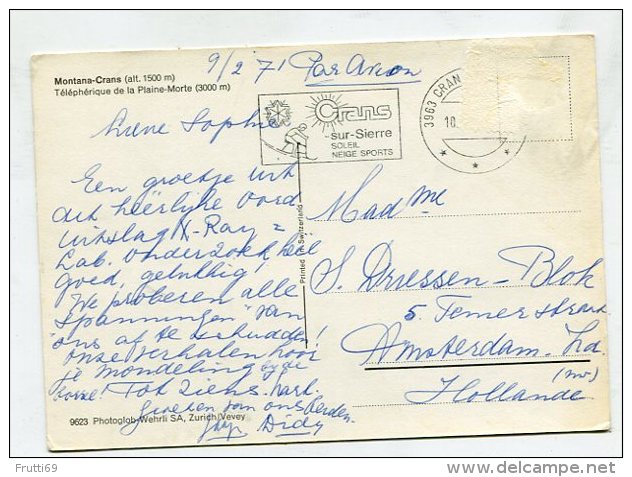 Montana-Crans (alt. 1500 m)
Téléphérique de la Plaine-Morte (3000 m)
9/2 71 Par Avion
Crans
-sur-Sierre
SOLEIL
NEIGE SPORTS
3963 CRAN
10.
Lieve Sophie
Een groetje uit
dit heerlijke oord
Uitslag X-Ray =
Lab. onderzoek heel
goed, gelukkig!
We proberen alle
"spanningen" van
ons af te schudden!
onze verhalen hoor
je mondeling bij de
Tot ziens, hart.
Groeten van ons beiden
Didy
Printed in Switzerland
Mad me
S. Driessen-Blok
5.
Amsterdam. Zd.
Hollande
9623 Photoglob-Wehrli SA, Zürich/Vevey
Frutti69
delcampe.net